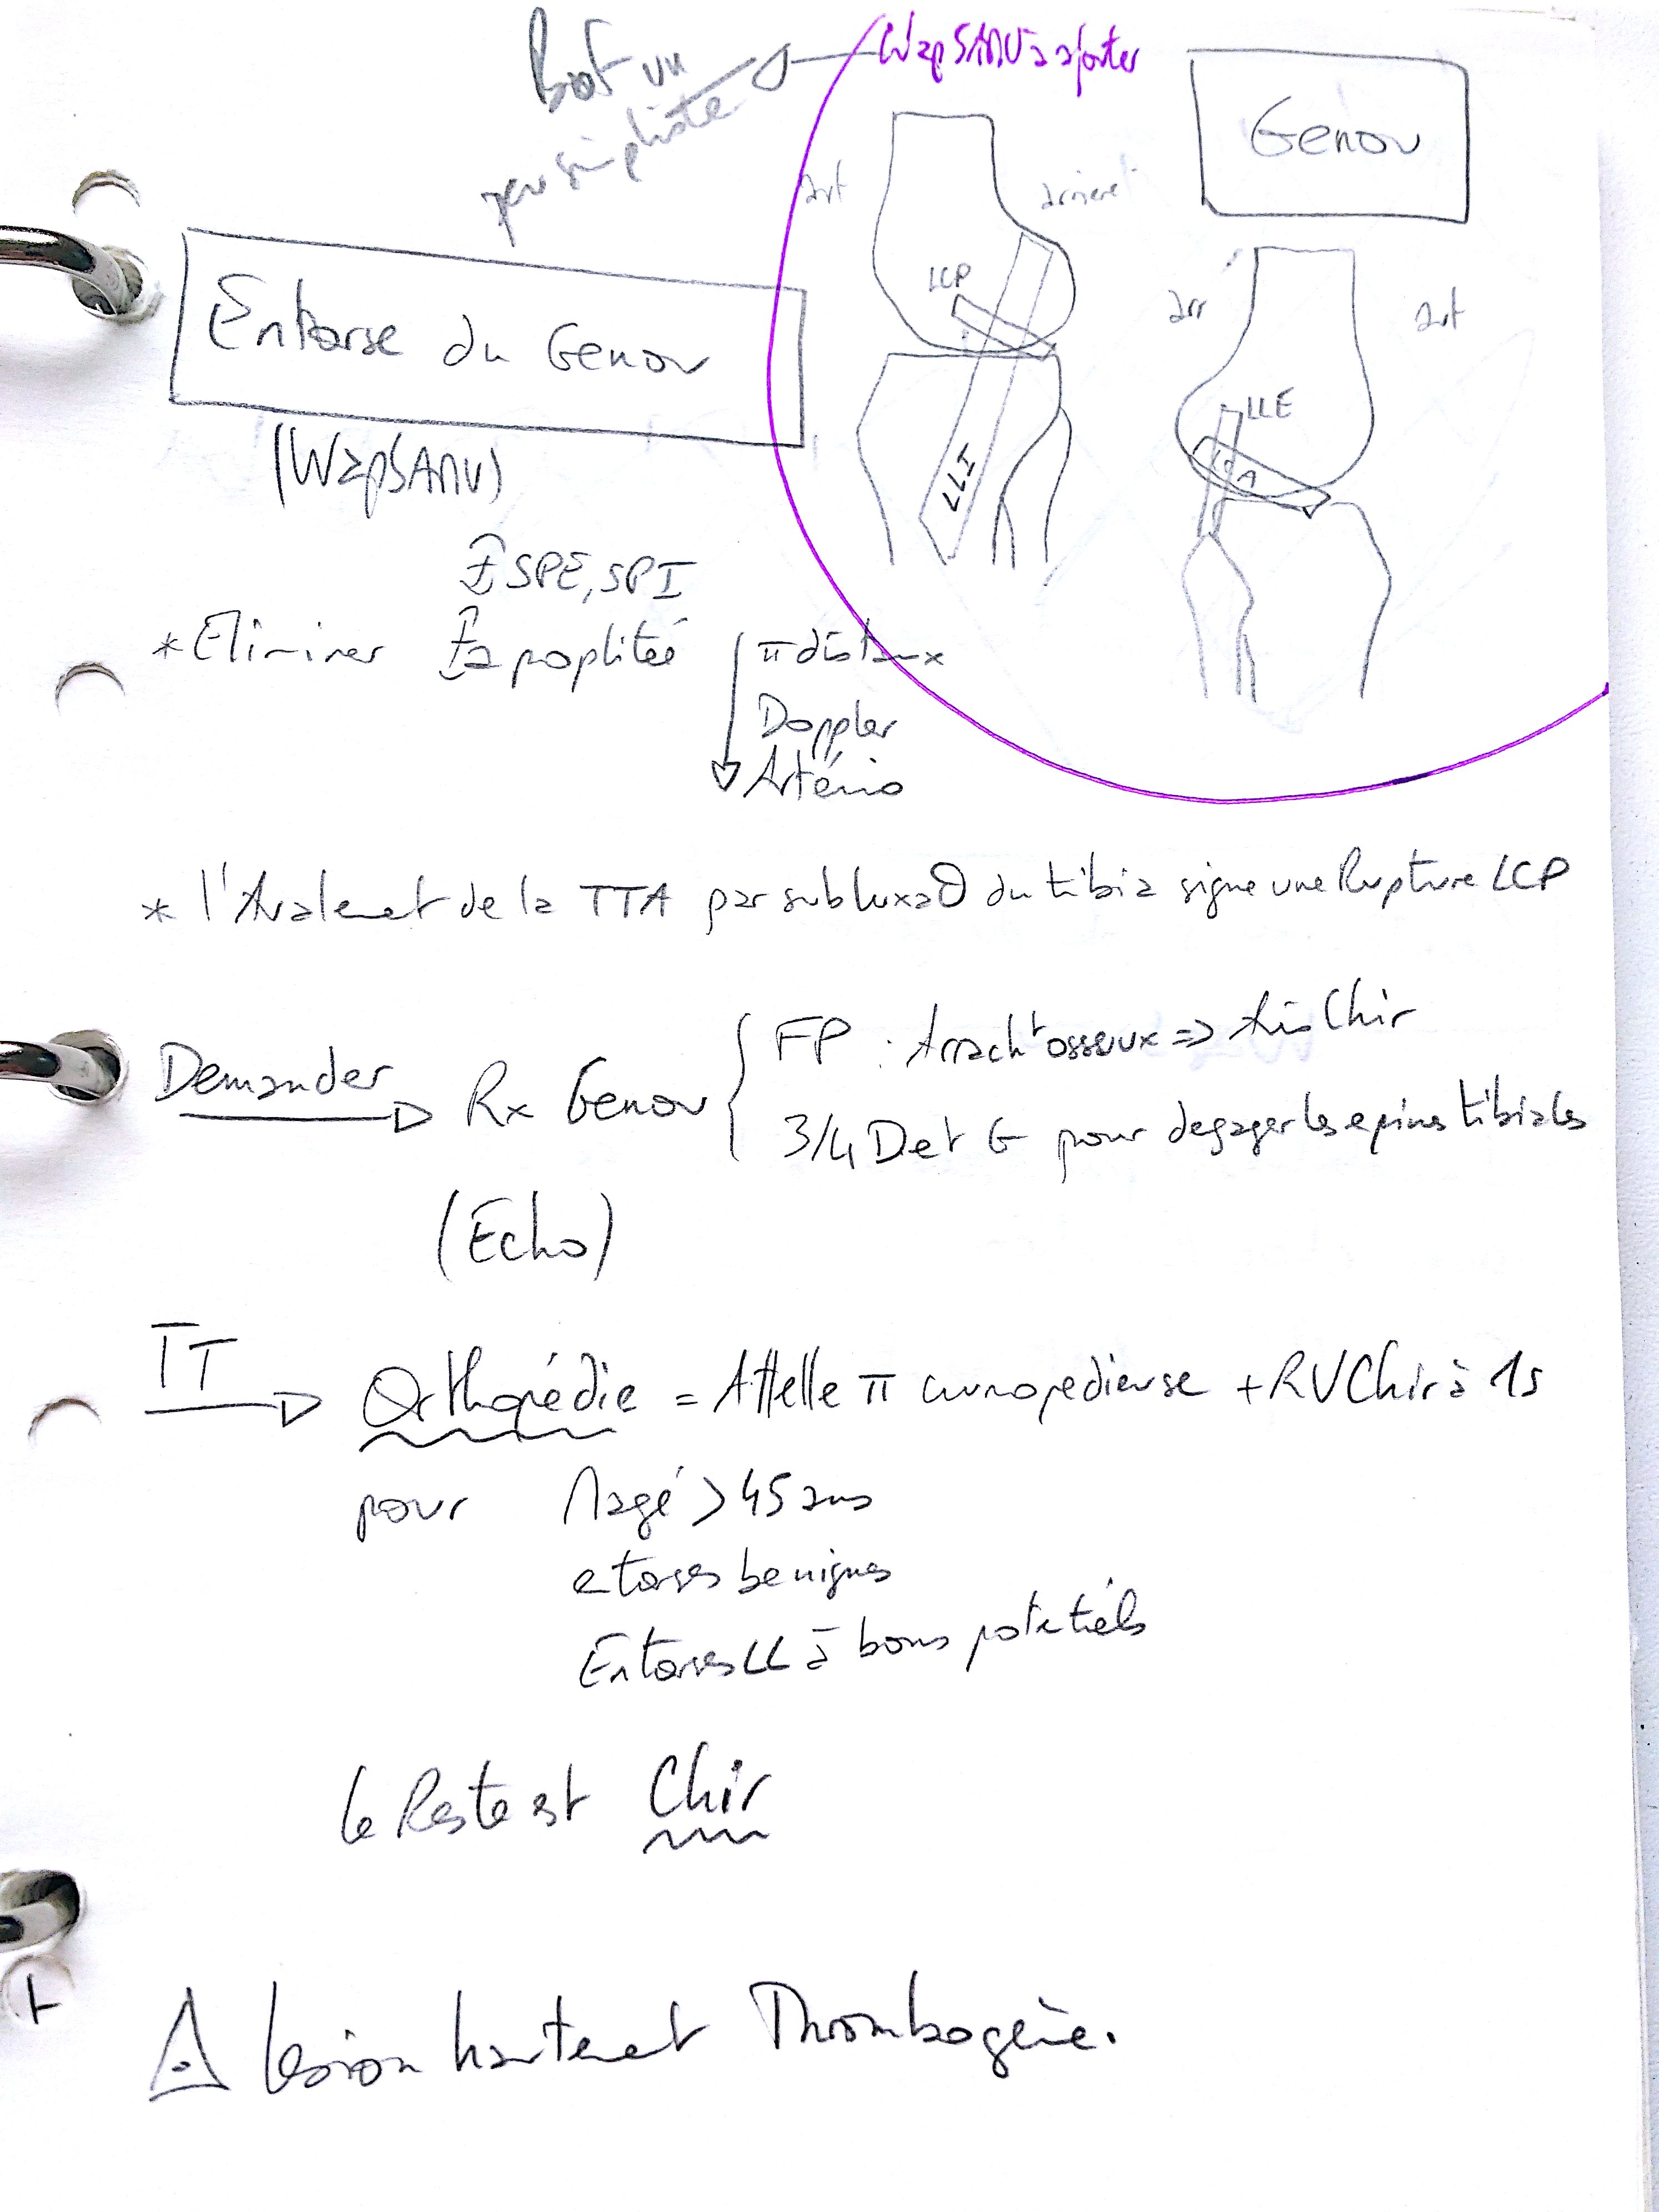 Bof un
peu simpliste
WapSAMU à ajouter
Genou
avt
arriere
LCP
LLI
arr
avt
LLE
LCA
Entorse du Genou
(WapSAMU)
SPE, SPI
* Eliminer a poplitée
π distaux
Doppler
Artério
* l'Avalemet de la TTA par subluxa° du tibia signe une Rupture LCP
Demander Rx Genou
FP : Arrach^t osseux => Avis Chir
3/4 D et G pour degager les epines tibiales
(Echo)
TT
Orthopédie = Attelle π cruropedieuse + RV Chir à 1s
pour agé > 45 ans
etorses benignes
Entorses LL à bons potetiels
le Reste est Chir
lésion hautemet Thrombogène.